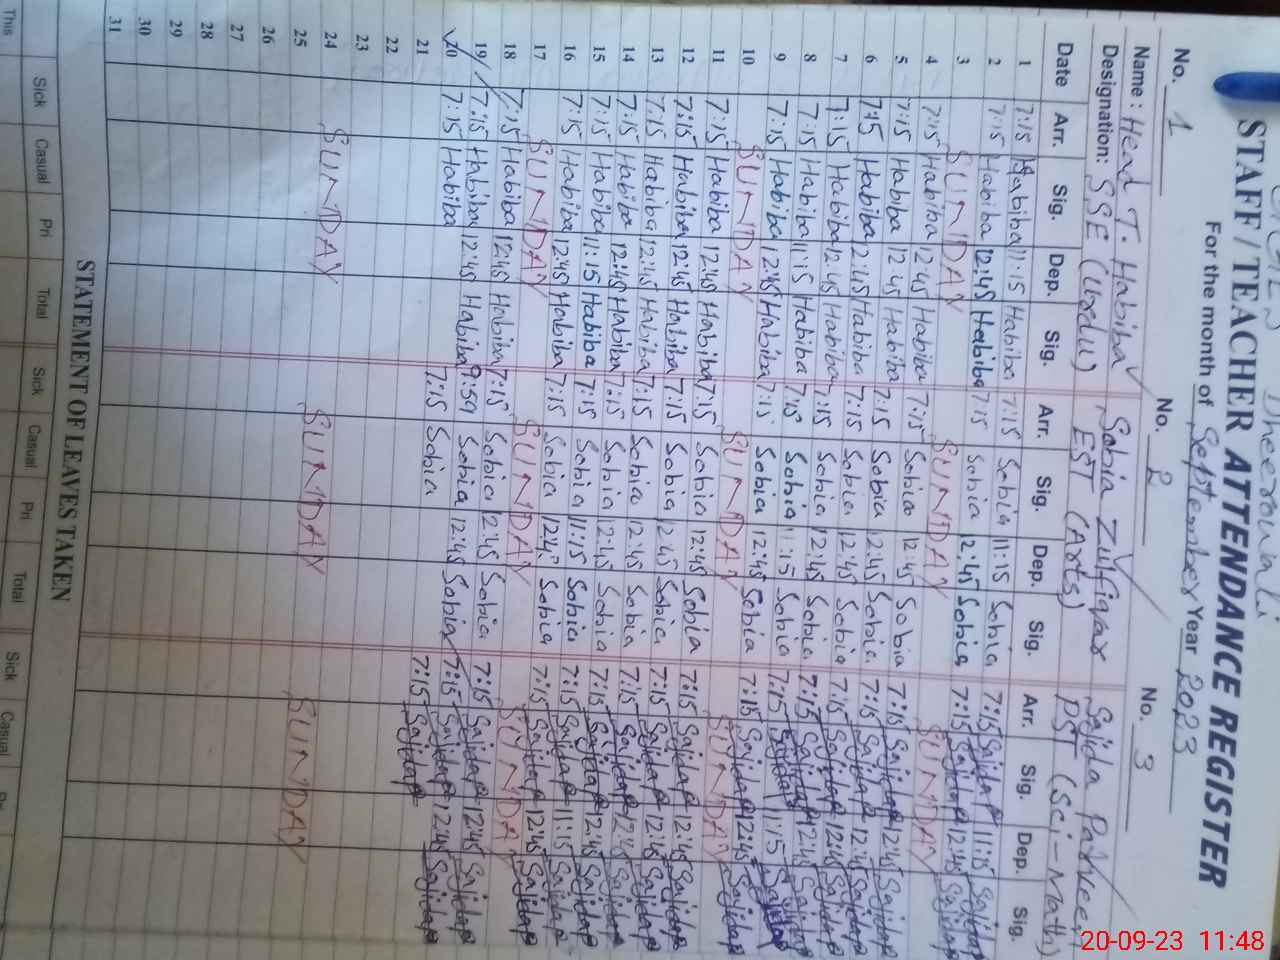 Dheerowali
STAFF / TEACHER ATTENDANCE REGISTER
For the month of September Year 2023
No. 1 No. 2 No. 3
Name : Head T. Habiba Sobia Zulfiqar Sajida Parveen
Designation: SSE (Urdu) EST (Arts) PST (Sci-Math)
Date Arr. Sig. Dep. Sig. Arr. Sig. Dep. Sig. Arr. Sig. Dep. Sig.
1 7:15 Habiba 11:15 Habiba 7:15 Sobia 11:15 Sobia 7:15 SajidaP 11:15 SajidaP
2 7:15 Habiba 12:45 Habiba 7:15 Sobia 12:45 Sobia 7:15 SajidaP 12:45 SajidaP
3 SUNDAY SUNDAY SUNDAY
4 7:15 Habiba 12:45 Habiba 7:15 Sobia 12:45 Sobia 7:15 SajidaP 12:45 SajidaP
5 7:15 Habiba 12:45 Habiba 7:15 Sobia 12:45 Sobia 7:15 SajidaP 12:45 SajidaP
6 7:15 Habiba 12:45 Habiba 7:15 Sobia 12:45 Sobia 7:15 SajidaP 12:45 SajidaP
7 7:15 Habiba 12:45 Habiba 7:15 Sobia 12:45 Sobia 7:15 SajidaP 12:45 SajidaP
8 7:15 Habiba 11:15 Habiba 7:15 Sobia 11:15 Sobia 7:15 SajidaP 11:15 SajidaP
9 7:15 Habiba 12:45 Habiba 7:15 Sobia 12:45 Sobia 7:15 SajidaP 12:45 SajidaP
10 SUNDAY SUNDAY SUNDAY
11 7:15 Habiba 12:45 Habiba 7:15 Sobia 12:45 Sobia 7:15 SajidaP 12:45 SajidaP
12 7:15 Habiba 12:45 Habiba 7:15 Sobia 12:45 Sobia 7:15 SajidaP 12:45 SajidaP
13 7:15 Habiba 12:45 Habiba 7:15 Sobia 12:45 Sobia 7:15 SajidaP 12:45 SajidaP
14 7:15 Habiba 12:45 Habiba 7:15 Sobia 12:45 Sobia 7:15 SajidaP 12:45 SajidaP
15 7:15 Habiba 11:15 Habiba 7:15 Sobia 11:15 Sobia 7:15 SajidaP 11:15 SajidaP
16 7:15 Habiba 12:45 Habiba 7:15 Sobia 12:45 Sobia 7:15 SajidaP 12:45 SajidaP
17 SUNDAY SUNDAY SUNDAY
18 7:15 Habiba 12:45 Habiba 7:15 Sobia 12:45 Sobia 7:15 SajidaP 12:45 SajidaP
19 7:15 Habiba 12:45 Habiba 9:59 Sobia 12:45 Sobia 7:15 SajidaP 12:45 SajidaP
20 7:15 Habiba 7:15 Sobia 7:15 SajidaP SajidaP
21
22
23
24 SUNDAY SUNDAY SUNDAY
25
26
27
28
29
30
31
STATEMENT OF LEAVES TAKEN
Sick Casual Pri Total Sick Casual Pri Total Sick Casual
This
20-09-23 11:48